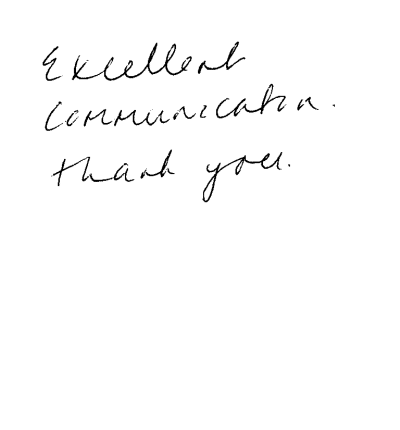 Excellent
communication.
thank you.